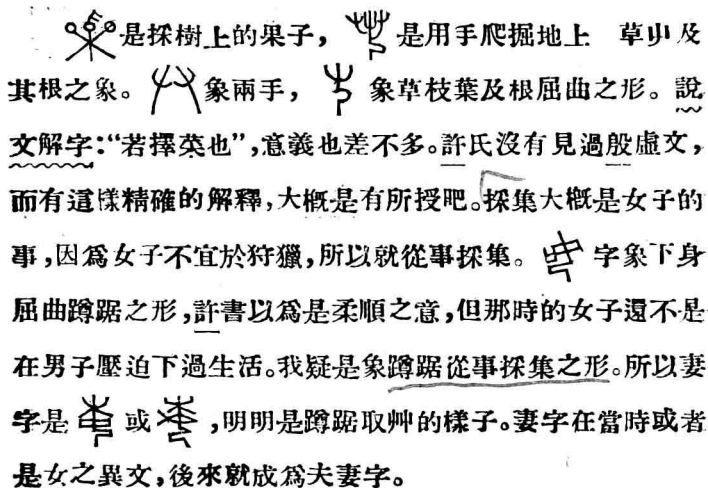 是採樹上的果子， 是用手爬掘地上 草屮及
其根之象。 象兩手， 象草枝葉及根屈曲之形。說
文解字：“若擇菜也”，意義也差不多。許氏沒有見過殷虛文，
而有這樣精確的解釋，大概是有所授吧。採集大概是女子的
事，因爲女子不宜於狩獵，所以就從事採集。 字象下身
屈曲蹲踞之形，許書以爲是柔順之意，但那時的女子還不是
在男子壓迫下過生活。我疑是象蹲踞從事採集之形。所以妻
字是 或 ，明明是蹲踞取艸的樣子。妻字在當時或者
是女之異文，後來就成爲夫妻字。